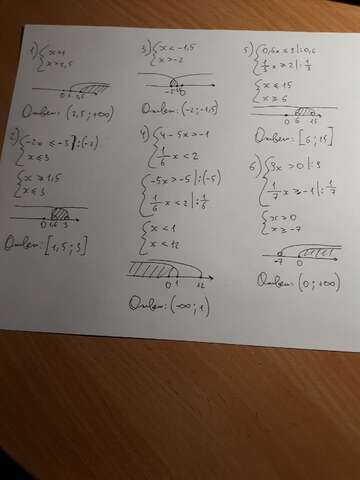 1) { x>1
x>2,5
0 1 2,5
Ответ: (2,5; +∞)
2) { -2x ≤ -3 |:(-2)
x ≤ 3
{ x ≥ 1,5
x ≤ 3
0 1,5 3
Ответ: [1,5; 3]
3) { x < -1,5
x > -2
-2 0
Ответ: (-2; -1,5)
4) { 4-5x > -1
1/6 x < 2
{ -5x > -5 |:(-5)
1/6 x < 2 |: 1/6
{ x < 1
x < 12
0 1 12
Ответ: (-∞; 1)
5) { 0,6x ≤ 9 |: 0,6
1/3 x ≥ 2 |: 1/3
{ x ≤ 15
x ≥ 6
0 6 15
Ответ: [6; 15]
6) { 3x > 0 |: 3
1/7 x ≥ -1 |: 1/7
{ x > 0
x ≥ -7
-7 0
Ответ: (0; +∞)